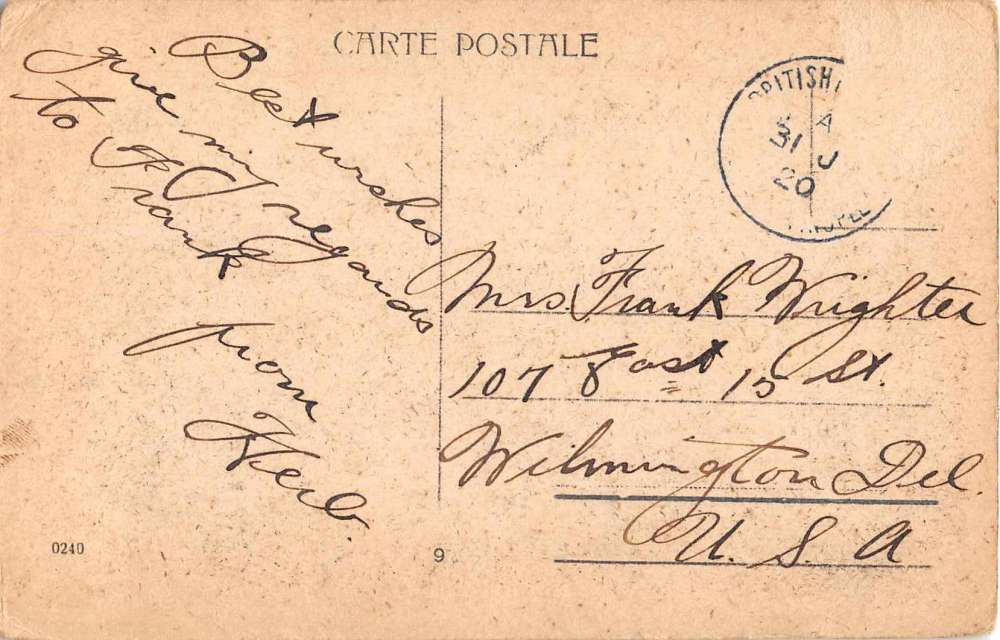 CARTE POSTALE
Best wishes
give my regards
to Frank
from
Herb.
BRITISH
A
31 J
20
Mrs. Frank Wrighter
107 East 15 St.
Wilmington Del.
U. S. A
0240
9